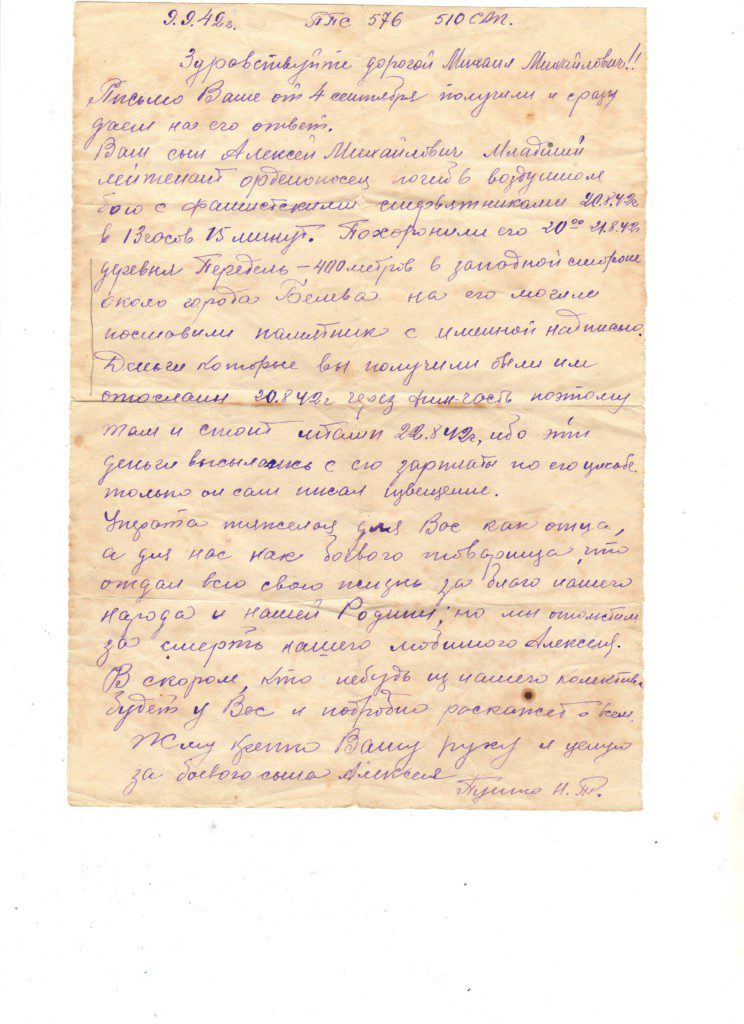 9.9.42г. ППС 576 510 САП.
Здравствуйте дорогой Михаил Михайлович!!
Письмо Ваше от 4 сентября получили и сразу
даем на его ответ.
Ваш сын Алексей Михайлович Младший
лейтенант орденоносец погиб в воздушном
бою с фашистскими 20.8.42г
в 13 часов 15 минут. Похоронили его 20⁰⁰ 21.8.42г
деревня Передель – 400 метров в западной стороне
около города Белева на его могиле
поставили памятник с именной надписью.
Деньги которые вы получили были им
отосланы 20.8 42г через фин-часть поэтому
там и стоит штамп 22.8 42г, ибо эти
деньги высылались с его зарплаты по его
только он сам писал извещение.
Утрата тяжелая для Вас как отца,
а для нас как боевого товарища, что
отдал всю свою жизнь за благо нашего
народа и нашей Родины, но мы отомстим
за смерть нашего любимого Алексея.
В скором, кто небудь из нашего колектива
будет у Вас и подробно раскажет о всем.
Жму крепко Вашу руку и целую
за боевого сына Алексея
Н.Т.